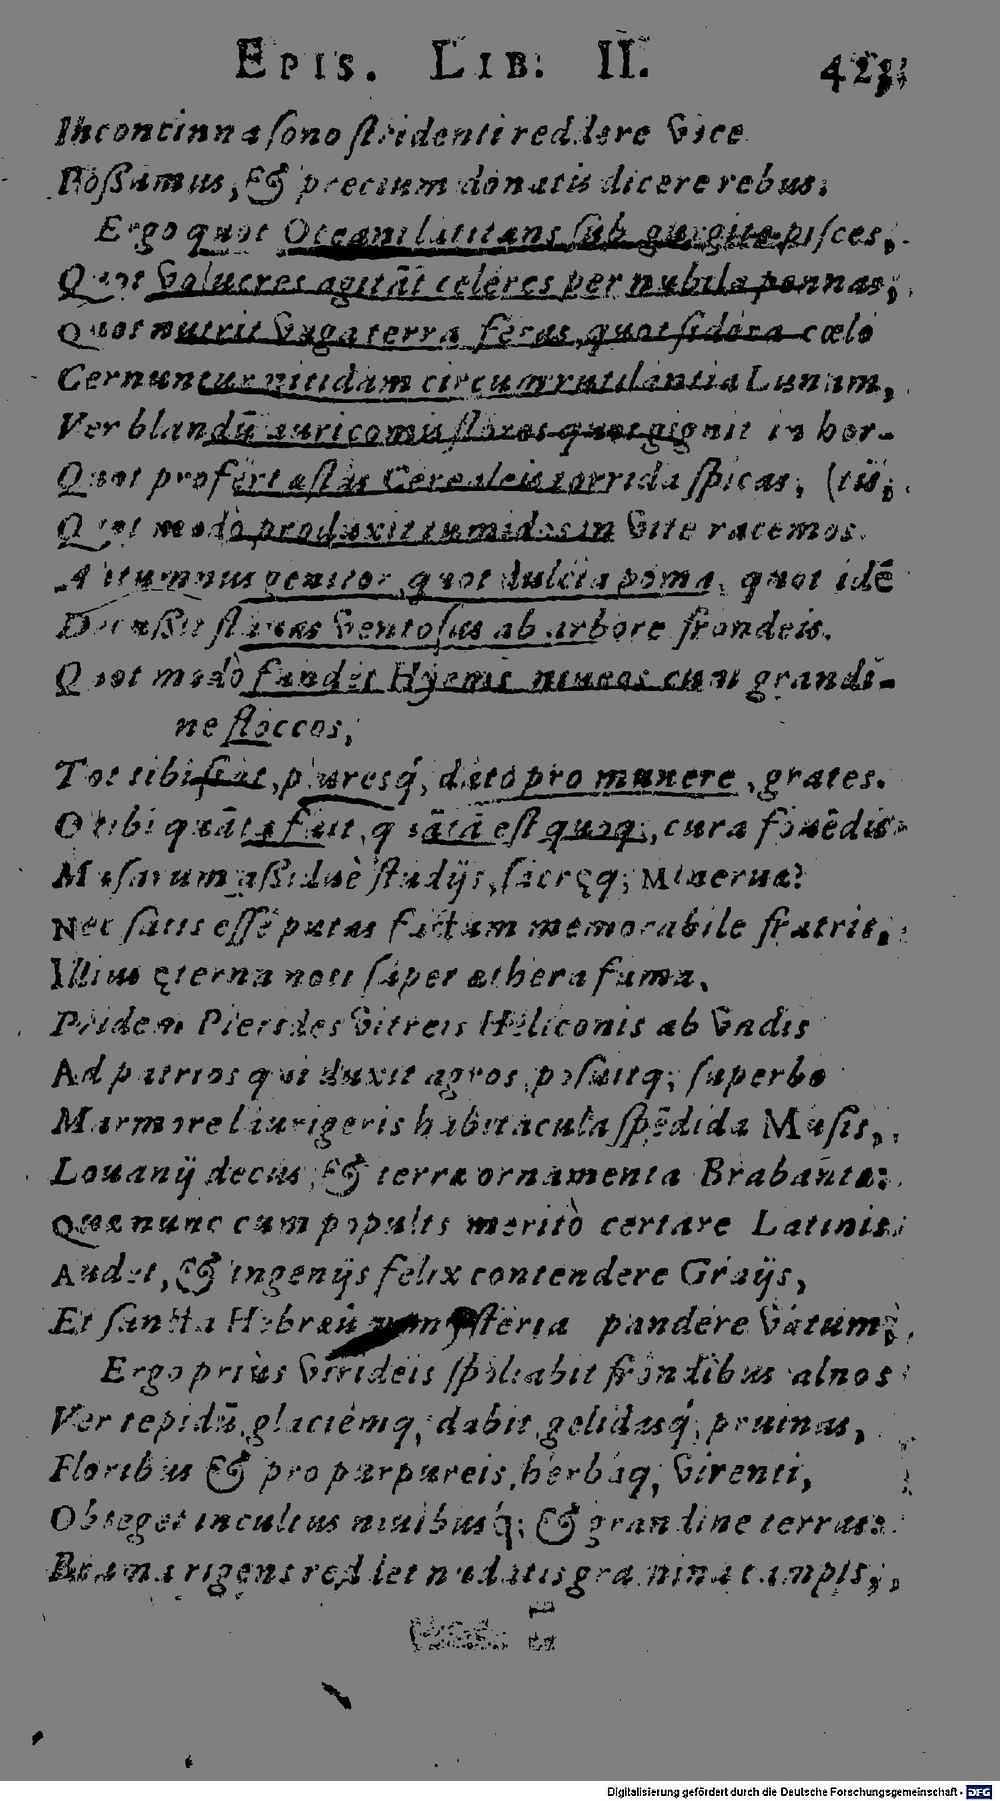 EPIS. LIB. II. 423
Inconcinna sono stridenti reddere vice
Possumus, & precium donatis dicere rebus.
Ergo quot Oceani latitans sub gurgite pisces,
Quot volucres agitāt celeres per nubila pennas,
Quot nutrit vaga terra feras, quot sidera cœlo
Cernuntur nitidam circum rutilantia Lunam,
Ver blandū auricomis flores quot gignit in hor-
Quot profert æstas Cerealeis torrida spicas, (tis,
Quot modò produxit tumidos in vite racemos
Autumnus genitor, quot dulcia poma, quot idē
Decussit stratas ventosus ab arbore frondeis.
Quot modò fundit Hyems niueos cum grandi-
ne floccos,
Tot tibi sint, pluresq́, dato pro munere, grates.
O tibi quāta fuit, quāta est quoq;, cura fouēdis
Musarum assiduè studijs, sacręq; Mineruæ?
Nec satis esse putas factum memorabile fratris,
Illius ęterna noti super æthera fama,
Pridem Pierides vitreis Heliconis ab vndis
Ad patrios qui duxit agros, posuitq; superbo
Marmore laurigeris habitacula spēdida Musis,
Louanij decus, & terræ ornamenta Brabantæ:
Quæ nunc cum populis meritò certare Latinis
Audet, & ingenijs felix contendere Graijs,
Et sancta Hebreū mysteria pandere vatum,
Ergo priùs virideis spoliabit frondibus alnos
Ver tepidū, glaciemq; dabit, gelidasq́; pruinas,
Floribus & pro purpureis, herbaq; virenti,
Obteget incultas niuibusq́; & grandine terras:
Bruma rigens reddet nudatis gramina campis,
Digitalisierung gefördert durch die Deutsche Forschungsgemeinschaft - DFG